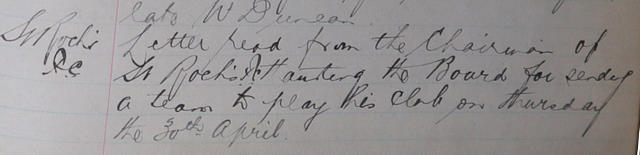 late W Duncan.
St Roch's Letter read from the Chairman of
&c St Roch's thanking the Board for sending
a team to play his Club on Thursday
the 30th April.